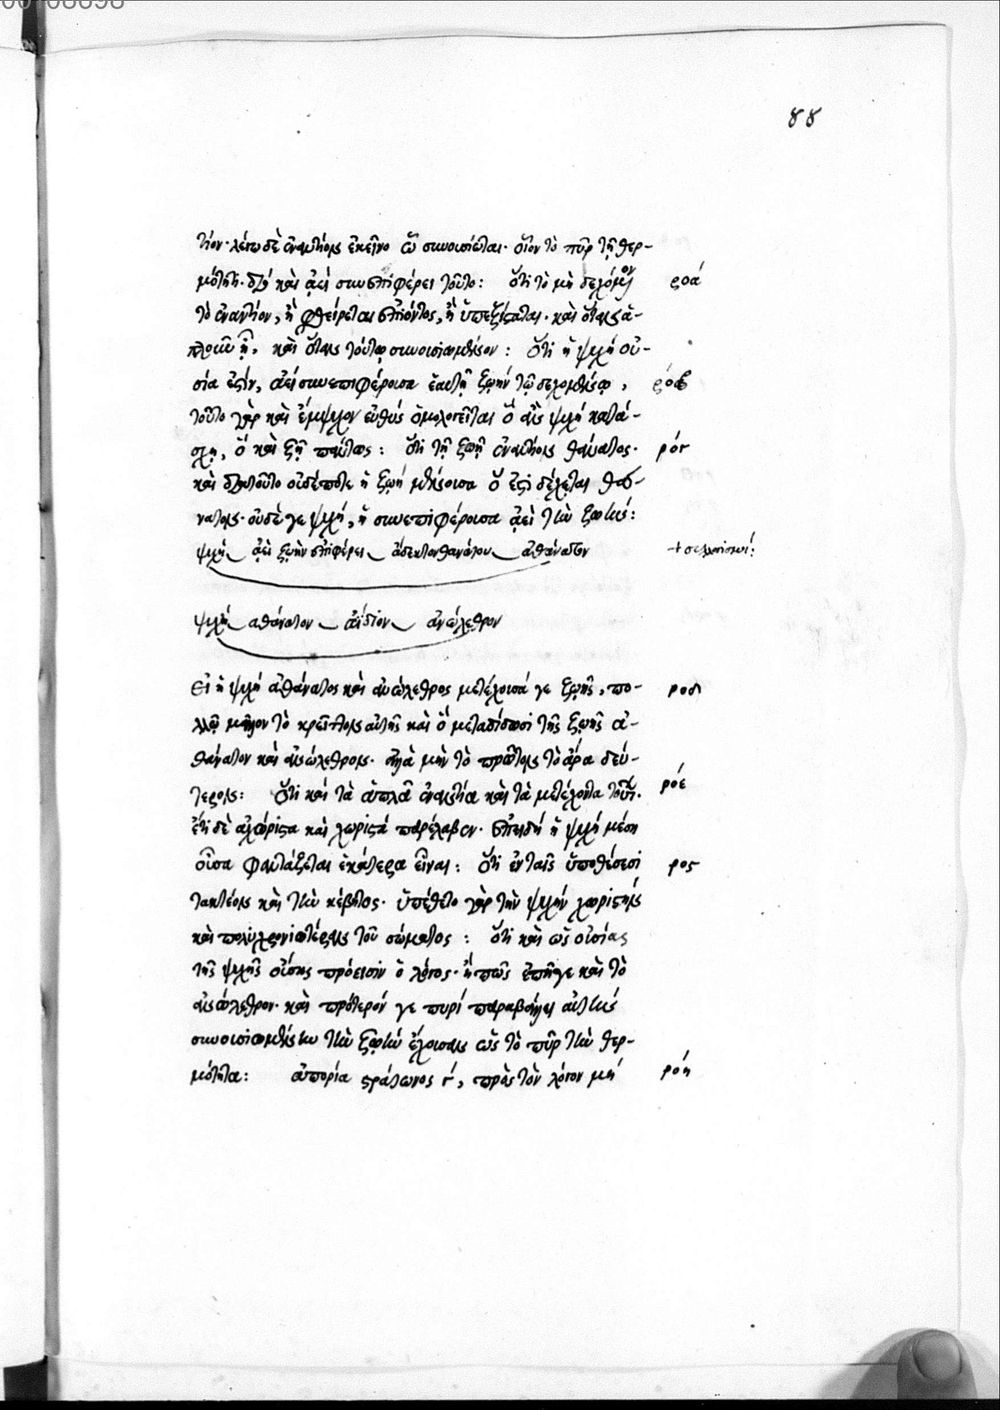 88
τίον· λέγω δὲ ἐναντίον ἐκεῖνο ᾧ συνουσίωται· οἷον τὸ πῦρ τῇ θερ-
μότητι· διὸ καὶ ἀεὶ συνεπιφέρει τοῦτο: ὅτι τὸ μὴ δεχόμενον ροά
τὸ ἐναντίον, ἢ φθείρεται ἐπιόντος, ἢ ὑπεξίσταται· καὶ ὅταν ἁ-
πλοῦν ᾖ, καὶ ὅταν τούτῳ συνουσιωμένον: ὅτι ἡ ψυχὴ οὐ-
σία ἐστίν, ἀεὶ συνεπιφέρουσα ἑαυτῇ ζωὴν τῷ δεχομένῳ, ροβ
τοῦτο γὰρ καὶ ἔμψυχον εὐθὺς ὁμολογεῖται ὃ ἂν ψυχὴ κατά-
σχῃ, ὃ καὶ ζῇ πάντως: ὅτι τῇ ζωῇ ἐναντίον θάνατος· ρογ
καὶ διατοῦτο οὐδέποτε ἡ ζωὴ μένουσα ὅ ἐστι δέχεται θά-
νατον· οὐδέ γε ψυχή, ἡ συνεπιφέρουσα ἀεὶ τὴν ζωήν:
ψυχὴ ἀεὶ ζωὴν ἐπιφέρει ἄδεκτον θανάτου ἀθάνατον + συλλογισμοί:
ψυχὴ ἀθάνατον ἀΐδιον ἀνώλεθρον
Εἰ ἡ ψυχὴ ἀθάνατος καὶ ἀνώλεθρος μετέχουσά γε ζωῆς, πο- ροδ
λλῷ μᾶλλον τὸ κρεῖττον αὐτῆς καὶ ὃ μεταδίδωσι τῆς ζωῆς ἀ-
θάνατον καὶ ἀνώλεθρον· ἀλλὰ μὴν τὸ πρῶτον τὸ ἄρα δεύ-
τερον: ὅτι καὶ τὰ ἁπλᾶ ἐναντία καὶ τὰ μετέχοντα τούτων. ροέ
ἔτι δὲ ἀχώριστα καὶ χωριστὰ παρέλαβεν· ἐπειδὴ ἡ ψυχὴ μέση
οὖσα φαντάζεται ἑκάτερα εἶναι: ὅτι ἐν ταῖς ὑποθέσεσι ρος
τακτέον καὶ τὴν κέβητος· ὑπέθετο γὰρ τὴν ψυχὴν χωριστὴν
καὶ πολυχρονιωτέραν τοῦ σώματος: ὅτι καὶ ὡς οὐσίας
τῆς ψυχῆς οὔσης πρόεισιν ὁ λόγος· ἢ πῶς ἐπῆγε καὶ τὸ
ἀνώλεθρον· καὶ πρότερόν γε πυρὶ παραβάλλει αὐτὴν
συνουσιωμένην τὴν ζωὴν ἔχουσαν ὡς τὸ πῦρ τὴν θερ-
μότητα: ἀπορία στράτωνος πρὸς τὸν λόγον μὴ ροή